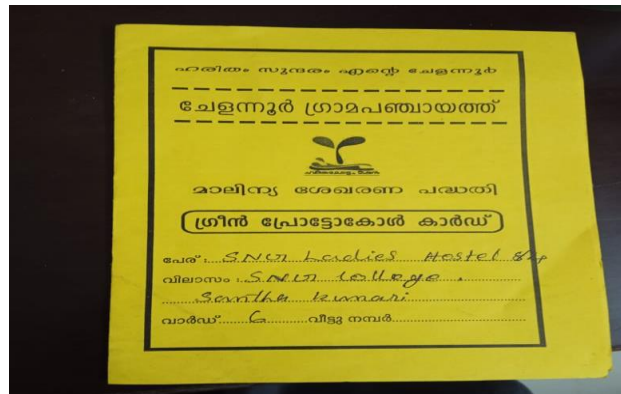 ഹരിതം സുന്ദരം എന്റെ ചേളന്നൂർ
ചേളന്നൂർ ഗ്രാമപഞ്ചായത്ത്
മാലിന്യ ശേഖരണ പദ്ധതി
ഗ്രീൻ പ്രോട്ടോകോൾ കാർഡ്
പേര് : SNG Ladies Hostel
വിലാസം : SNG College.
Santha Kumari
വാർഡ് 6 വീട്ടു നമ്പർ